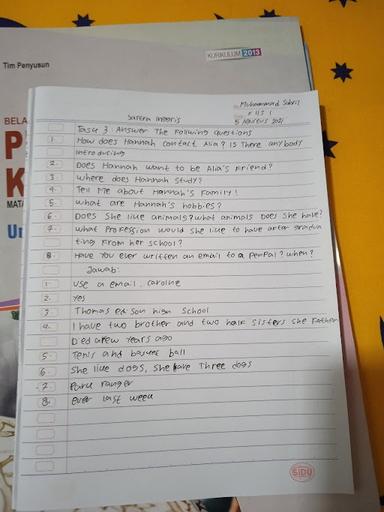 KURIKULUM 2013
Tim Penyusun
BELA
P
K
MATA
Un
Muhammad Sahril
Sastra Inggris
XII S 1
5 Agustus 2021
Task 3 Answer The Following Questions
1. How does Hannah contact Alia? Is There any body
Introducting
2. Does Hannah want to be Alia's Friend?
3. Where does Hannah Study?
4. Tell Me about Hannah's Family!
5. What are Hannah's hobbies?
6. Does She like animals? what animals Does She have?
7. What Profession would She like to have after gradua
ting From her school?
8. Have you ever written an email to a PenPal? when?
Jawab:
1. Use a email, caroline
2. Yes
3. Thomas Edison high School
4. I have two brother and two half Sisters She Father
Died afew Years ago
5. Tenis and ball
6. She like dogs, She have Three dogs
7. Park ranger
8. Ever last week
SIDU